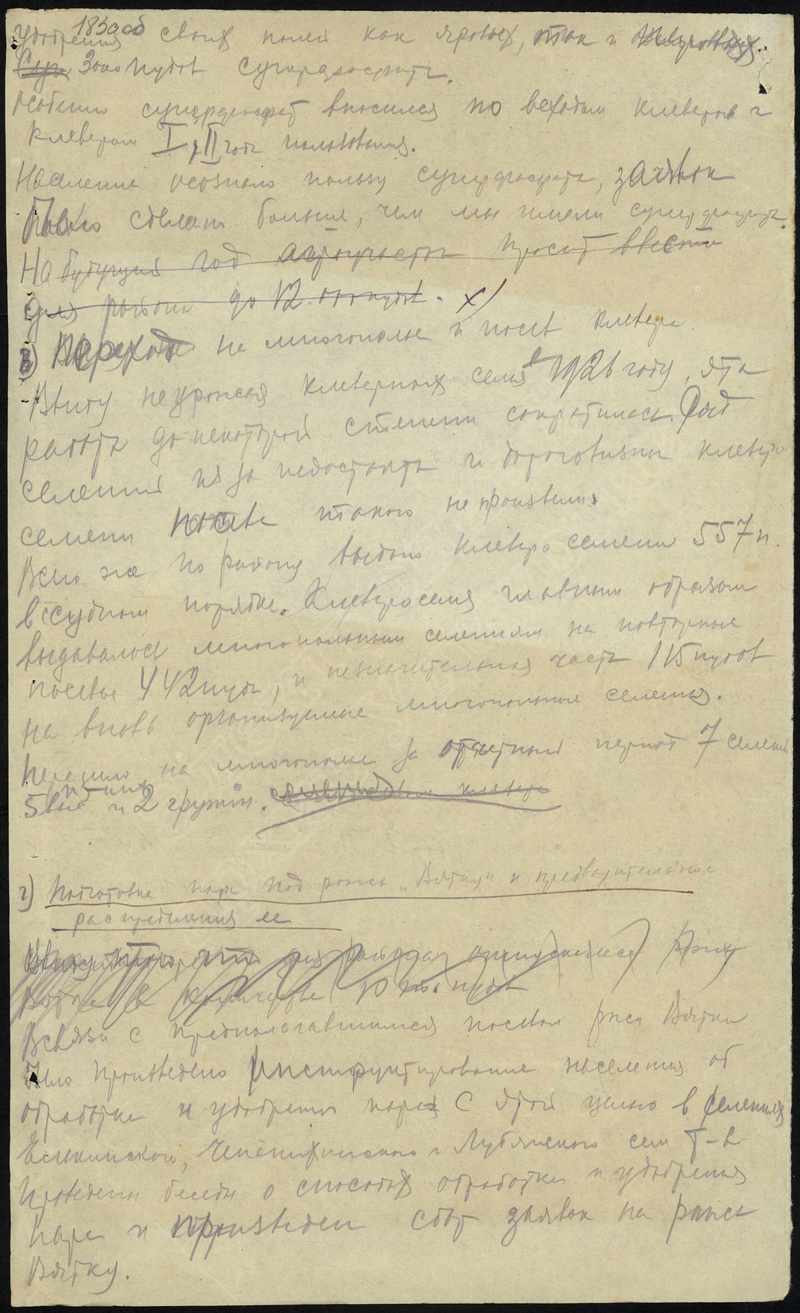 1850 об
удобрения своих полей как яровых, так и клеверовых.
3000 пудов суперфосфата.
особенно суперфосфат вносился по всходам клеверов и
клеверам I и II года пользования.
Население осознало пользу суперфосфата, заявок
было сделано больше, чем мы имели суперфосфата.
На будущий год агроучасток просит ввести
для района до 12 пудов. х)
в) Переход на многополье и посев клевера.
Ввиду неурожая клеверных семян в 1926 году, эта
работа до некоторой степени сократилась. Ряд
селений из за недостатка и дороговизны клеверо
семени такого не произвели
Всего же по району выдано клевера семени 557 п.
в ссудном порядке. Клеверосемя главным образом
выдавалось многопольным селениям на повторные
посевы 442 пуда, и незначительная часть 115 пудов
на вновь организуемые многопольные селения.
Перешло на многополье за отчетный период 7 селений
5 и 2 группы.
г) Подготовка пара под рожь „Вятку" и предварительное
распределение ее
в количестве 10 т. пудов
В связи с предполагавшимся посевом ржи Вятки
было произведено инструктирование населения об
обработке и удобрении пара. С этой целью в селениях
Чепецкого и Лубянского сем т-в
проведены беседы о способах обработки и удобрения
пара и произведен сбор заявок на рожь
Вятку.